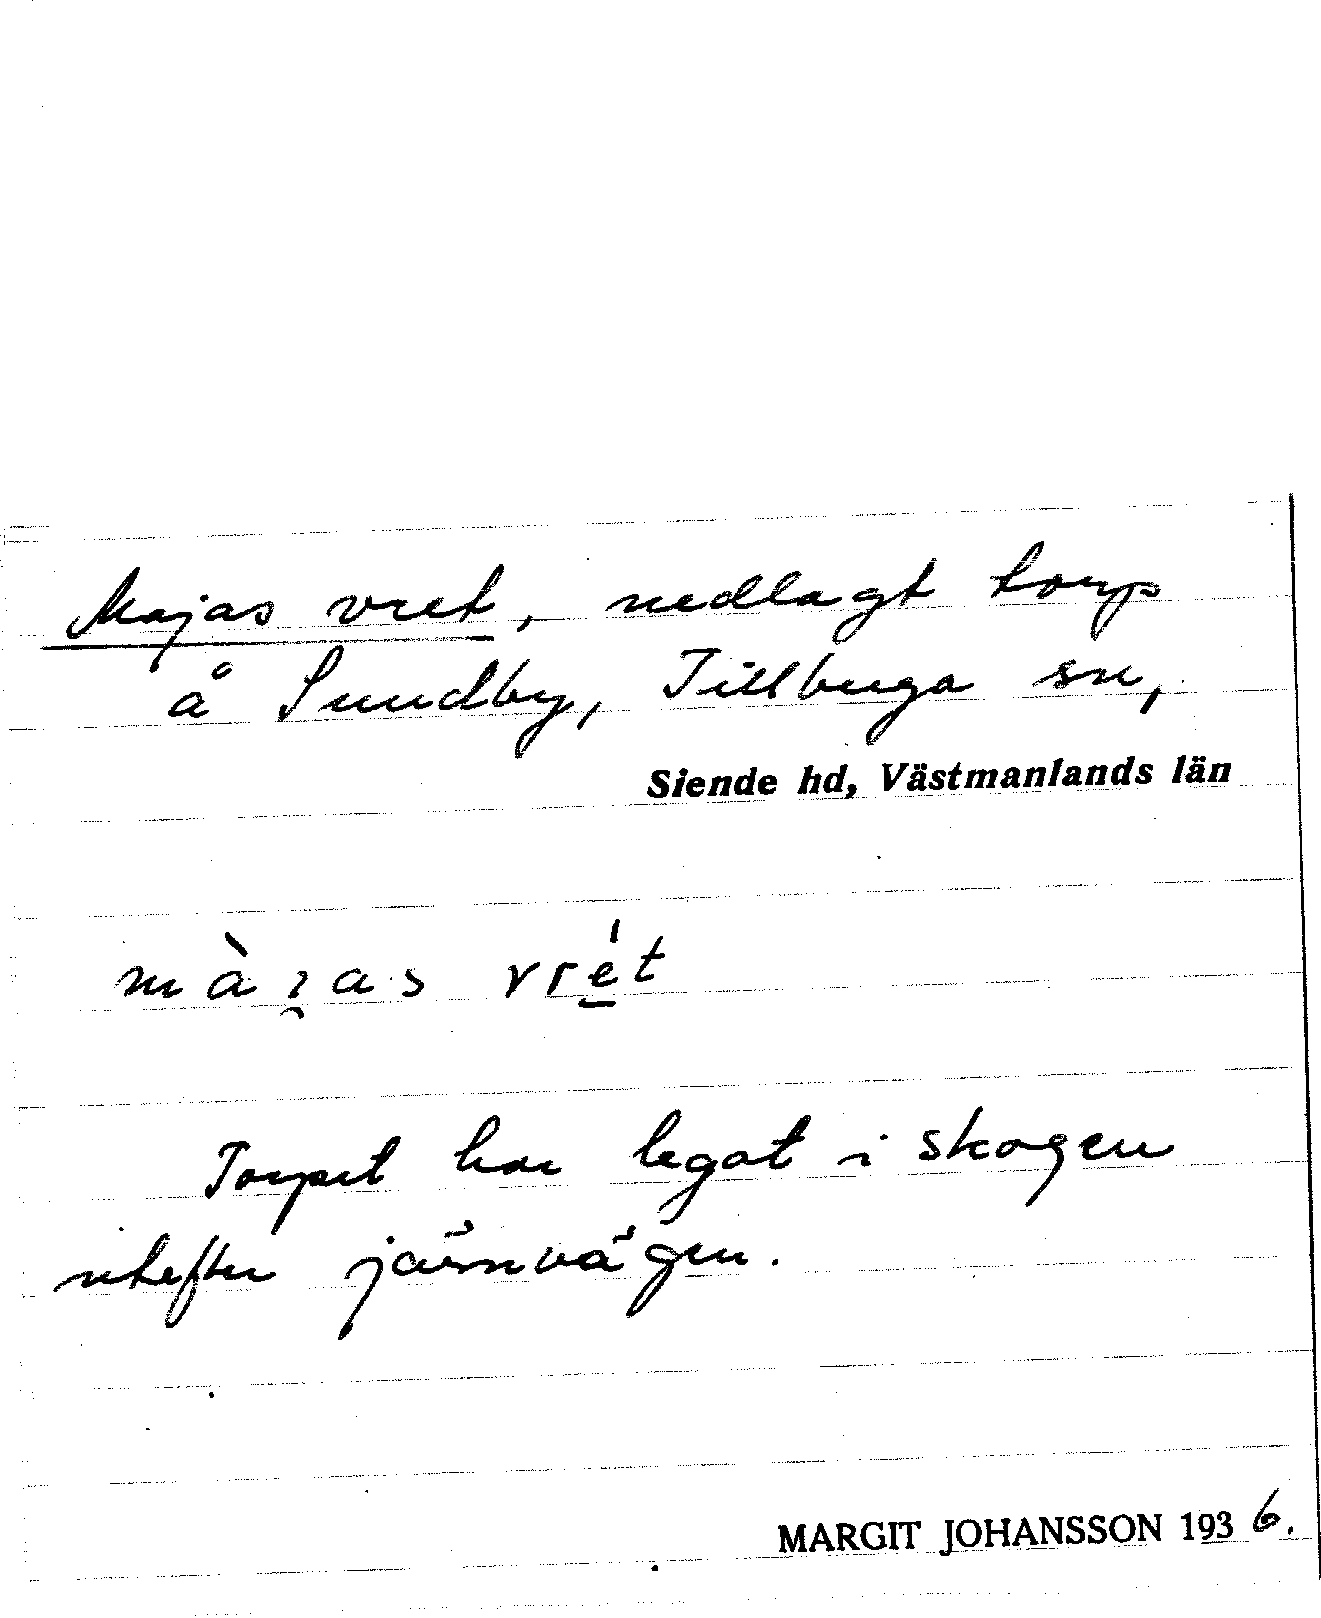 Majas vret, nedlagt torp
å Sundby, Tillberga sn,
Siende hd, Västmanlands län
vrét
Torpet har legat i skogen
utefter järnvägen.
MARGIT JOHANSSON 1936.